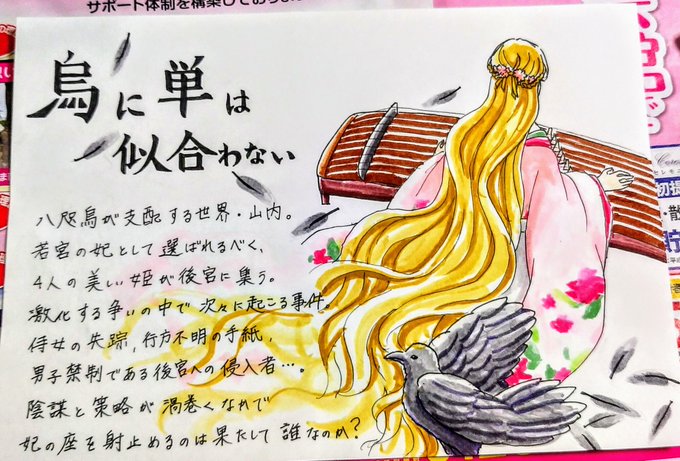 サポート体制を構築しており
烏に単は
似合わない
八咫烏が支配する世界・山内。
若宮の妃として選ばれるべく、
4人の美しい姫が後宮に集う。
激化する争いの中で次々に起こる事件。
侍女の失踪，行方不明の手紙，
男子禁制である後宮への侵入者…。
陰謀と策略が渦巻くなかで
妃の座を射止めるのは果たして誰なのか?